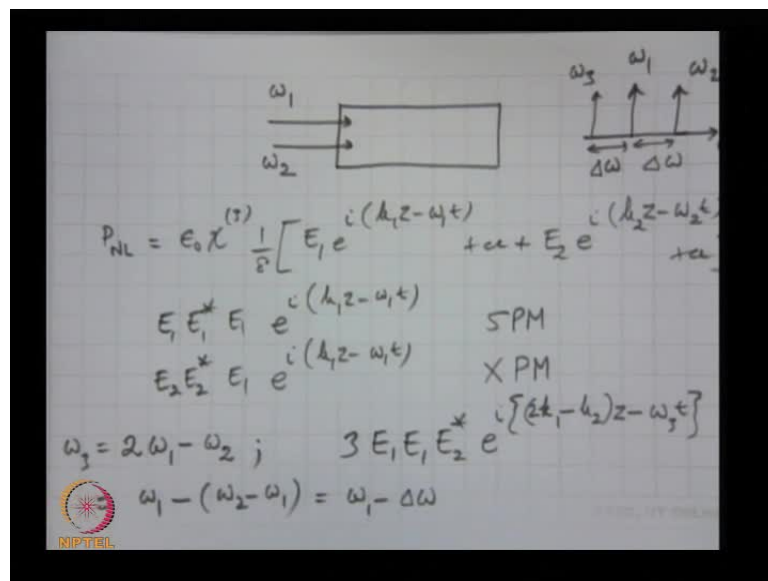 ω₁
ω₂
ω₃ ω₁ ω₂
Δω Δω
P_NL = ε₀ χ^(3) 1/8 [ E₁ e^{i(k₁z-ω₁t)} + cc + E₂ e^{i(k₂z-ω₂t)} + cc ]
E₁ E₁* E₁ e^{i(k₁z-ω₁t)} SPM
E₂ E₂* E₁ e^{i(k₁z-ω₁t)} XPM
ω₃ = 2ω₁ - ω₂ ; 3 E₁ E₁ E₂* e^{i{(2k₁-k₂)z-ω₃t}}
= ω₁ - (ω₂ - ω₁) = ω₁ - Δω
NPTEL